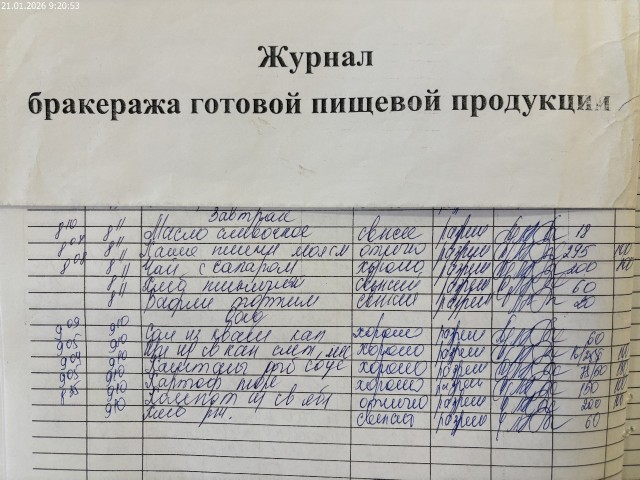 21.01.2026 9:20:53
Журнал
бракеража готовой пищевой продукции
Завтрак
8 10 8 11 Масло сливочное свежее разреш 18
8 07 8 11 Каша пшенич отлично разреш 295 100
8 08 8 11 Чай с сахаром хорошо разреш 200 100
8 11 Хлеб пшеничн свежий разреш 60
8 11 Вафли свежие разреш 20
Обед
9 09 9 10 из кваш кап хорошо разреш 60
9 05 9 10 Щи из св кап смет хорошо разреш
9 04 9 10 соус хорошо разреш 100
9 05 9 10 Картоф пюре хорошо разреш 150 100
8 35 9 10 Компот из св яб отлично разреш 200 100
9 10 Хлеб рж. свежий разреш 60